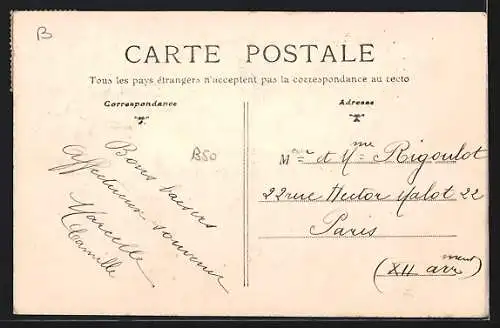 B
CARTE POSTALE
Tous les pays étrangers n'acceptent pas la correspondance au recto
Correspondance
Bons baisers
affectueux souvenir
Marcelle
Camille
B50
Adresse
Mr et Mme Rigoulot
22 rue Hector Malot 22
Paris
(XII arrment)